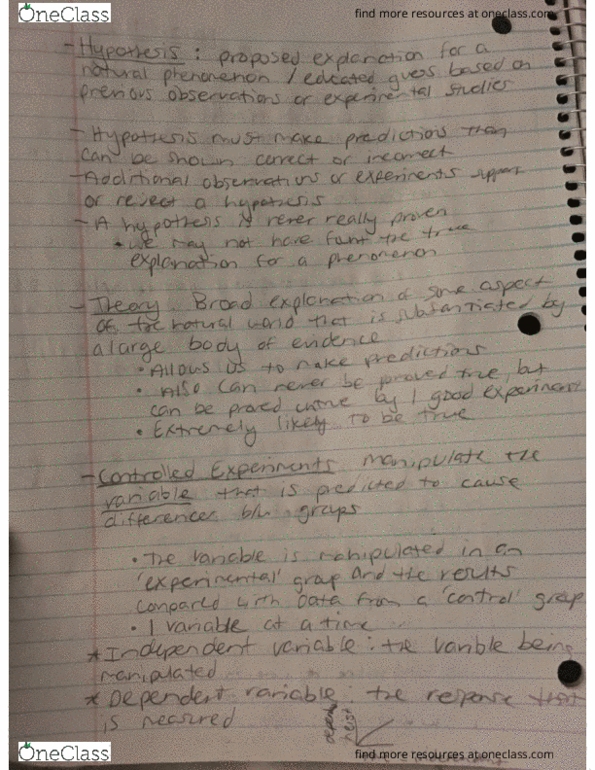 OneClass
find more resources at oneclass.com
- Hypothesis : proposed explanation for a
natural phenomenon / educated guess based on
previous observations or experimental studies
- Hypothesis must make predictions that
can be shown correct or incorrect
- Additional observations or experiments support
or reject a hypothesis
- A hypothesis is never really proven
• we may not have found the true
explanation for a phenomenon
- Theory Broad explanation of some aspect
of the natural world that is substantiated by
a large body of evidence
• Allows us to make predictions
• Also can never be proved true, but
can be proved untrue by 1 good experiment
• Extremely likely to be true
- Controlled Experiments manipulate the
variable that is predicted to cause
differences b/w groups
• The variable is manipulated in an
'experimental' group and the results
compared with data from a 'control' group
• 1 variable at a time
* Independent variable : the varible being
manipulated
* Dependent variable : the response that
is measured
OneClass
find more resources at oneclass.com